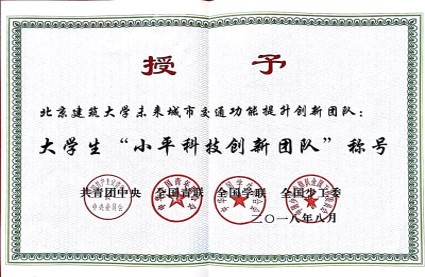 授予
北京建筑大学未来城市交通功能提升创新团队：
大学生“小平科技创新团队”称号
共青团中央 全国青联 全国学联 全国少工委
二〇一八年八月